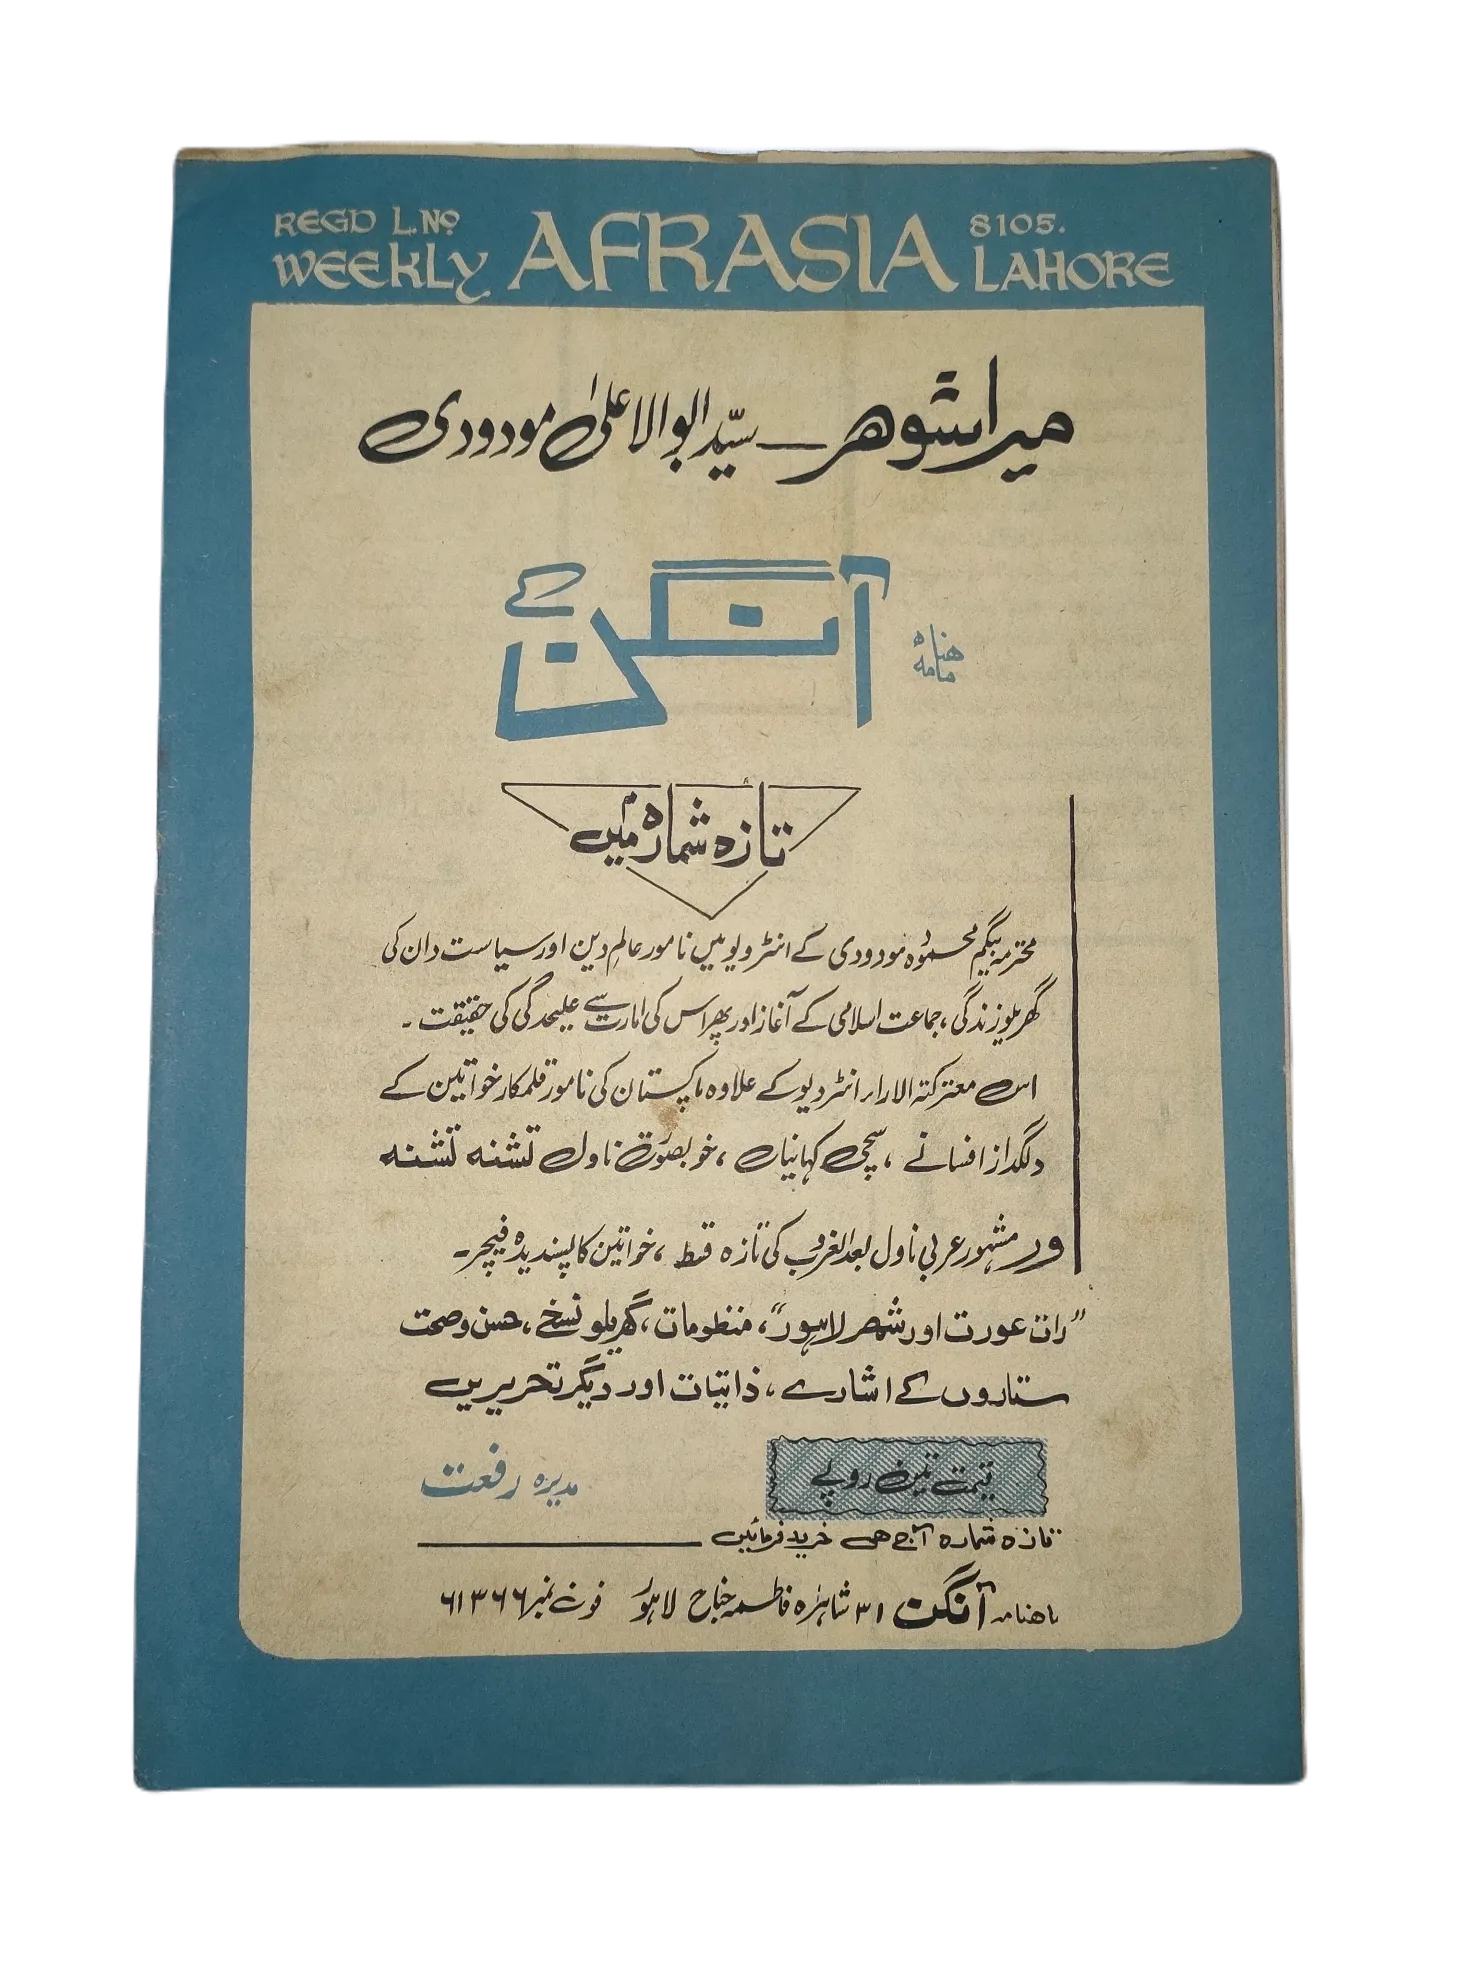 REGD L.No 8105.
WEEKLY AFRASIA LAHORE
میرا شوہر — سیّد ابوالاعلیٰ مودودی
ماہنامہ آنگن کے
تازہ شمارہ میں
محترمہ بیگم محمودہ مودودی کے انٹرویو میں نامور عالمِ دین اور سیاست دان کی
گھریلو زندگی، جماعت اسلامی کے آغاز اور پھر اس کی امارت سے علیحدگی کی حقیقت۔
اس معترکتہ الارار انٹرویو کے علاوہ پاکستان کی نامور قلمکار خواتین کے
دلگداز افسانے، سچی کہانیاں، خوبصورت ناول تشنہ تشنہ
ور مشہور عربی ناول بعد الغروب کی تازہ قسط، خواتین کا پسندیدہ فیچر۔
"رات عورت اور شہر لاہور"، منظومات، گھریلو نسخے، حسن و صحت
ستاروں کے اشارے، ذاتیات اور دیگر تحریریں
قیمت تین روپے
مدیرہ رفعت
تازہ شمارہ آج ہی خرید فرمائیں
ماہنامہ آنگن ۳۱ شاہراہ فاطمہ جناح لاہور فون نمبر ۶۱۳۶۶